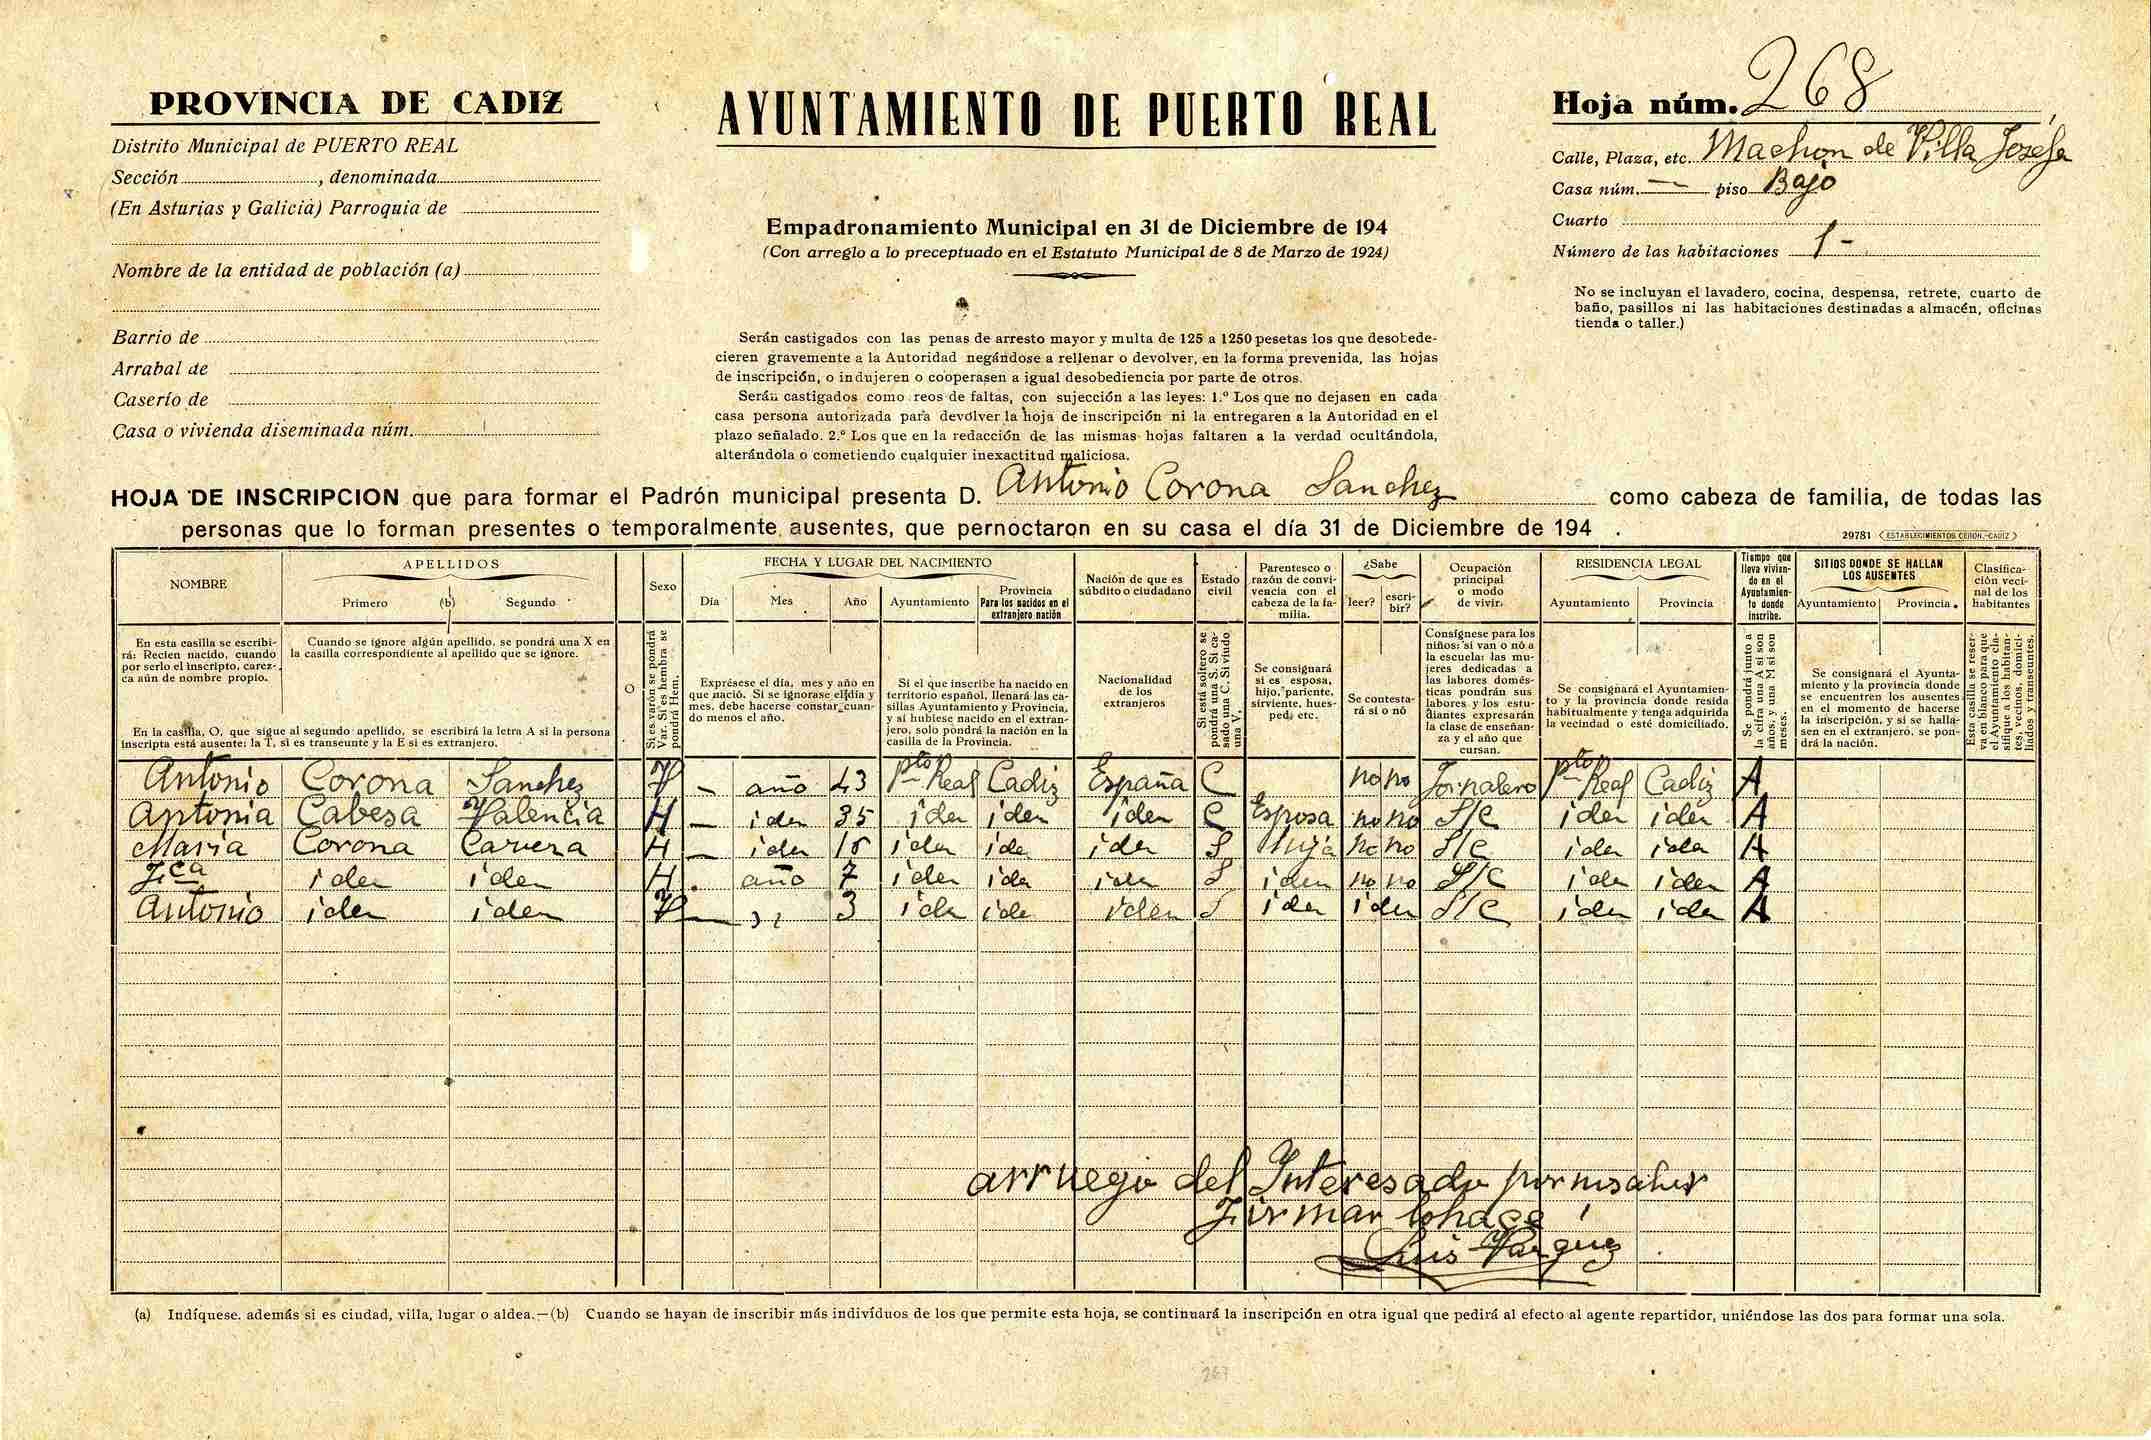 PROVINCIA DE CADIZ
Distrito Municipal de PUERTO REAL
Sección , denominada
(En Asturias y Galicia) Parroquia de
Nombre de la entidad de población (a)
Barrio de
Arrabal de
Caserío de
Casa o vivienda diseminada núm.
AYUNTAMIENTO DE PUERTO REAL
Empadronamiento Municipal en 31 de Diciembre de 194
(Con arreglo a lo preceptuado en el Estatuto Municipal de 8 de Marzo de 1924)
Serán castigados con las penas de arresto mayor y multa de 125 a 1250 pesetas los que desobede-
cieren gravemente a la Autoridad negándose a rellenar o devolver, en la forma prevenida, las hojas
de inscripción, o indujeren o cooperasen a igual desobediencia por parte de otros.
Serán castigados como reos de faltas, con sujección a las leyes: 1.º Los que no dejasen en cada
casa persona autorizada para devolver la hoja de inscripción ni la entregaren a la Autoridad en el
plazo señalado. 2.º Los que en la redacción de las mismas hojas faltaren a la verdad ocultándola,
alterándola o cometiendo cualquier inexactitud maliciosa.
Hoja núm. 268
Calle, Plaza, etc. Machon de Villa Josefa
Casa núm. — piso Bajo
Cuarto
Número de las habitaciones 1 -
No se incluyan el lavadero, cocina, despensa, retrete, cuarto de
baño, pasillos ni las habitaciones destinadas a almacén, oficinas
tienda o taller.)
HOJA DE INSCRIPCION que para formar el Padrón municipal presenta D. Antonio Corona Sanchez como cabeza de familia, de todas las
personas que lo forman presentes o temporalmente ausentes, que pernoctaron en su casa el día 31 de Diciembre de 194 .
29781 (ESTABLECIMIENTOS CERON.-CADIZ)
NOMBRE
APELLIDOS
Primero (b) Segundo
Sexo
FECHA Y LUGAR DEL NACIMIENTO
Día Mes Año Ayuntamiento
Provincia
Para los nacidos en el
extranjero nación
Nación de que es
súbdito o ciudadano
Estado
civil
Parentesco o
razón de convi-
vencia con el
cabeza de la fa-
milia.
¿Sabe
leer? escri-
bir?
Ocupación
principal
o modo
de vivir.
RESIDENCIA LEGAL
Ayuntamiento Provincia
Tiempo que
lleva vivien-
do en el
Ayuntamien-
to donde
inscribe.
SITIOS DONDE SE HALLAN
LOS AUSENTES
Ayuntamiento Provincia.
Clasifica-
ción veci-
nal de los
habitantes
En esta casilla se escribi-
rá: Recien nacido, cuando
por serlo el inscripto, carez-
ca aún de nombre propio.
Cuando se ignore algún apellido, se pondrá una X en
la casilla correspondiente al apellido que se ignore.
En la casilla, O, que sigue al segundo apellido, se escribirá la letra A si la persona
inscripta está ausente: la T, si es transeunte y la E si es extranjero.
O
Si es varón se pondrá
Var. Si es hembra se
pondrá Hem.
Exprésese el día, mes y año en
que nació. Si se ignorase el día y
mes, debe hacerse constar cuan-
do menos el año.
Si el que inscribe ha nacido en
territorio español, llenará las ca-
sillas Ayuntamiento y Provincia,
y si hubiese nacido en el extran-
jero, solo pondrá la nación en la
casilla de la Provincia.
Nacionalidad
de los
extranjeros
Si está soltero se
pondrá una S. Si ca-
sado una C. Si viudo
una V,
Se consignará
si es esposa,
hijo, pariente,
sirviente, hues-
ped, etc.
Se contesta-
rá sí o nó
Consígnese para los
niños: si van o nó a
la escuela: las mu-
jeres dedicadas a
las labores domés-
ticas pondrán sus
labores y los estu-
diantes expresarán
la clase de enseñan-
za y el año que
cursan.
Se consignará el Ayuntamien-
to y la provincia donde resida
habitualmente y tenga adquirida
la vecindad o esté domiciliado.
Se pondrá junto a
la cifra una A si son
años, y una M si son
meses.
Se consignará el Ayunta-
miento y la provincia donde
se encuentren los ausentes
en el momento de hacerse
la inscripción, y si se halla-
sen en el extranjero, se pon-
drá la nación.
Esta casilla se reser-
va en blanco para que
el Ayuntamiento cla-
sifique a los habitan-
tes, vecinos, domici-
liados y transeuntes.
Antonio Corona Sanchez V - año 43 Pto Real Cadiz España C no no Jornalero Pto Real Cadiz A
Antonia Cabesa Valencia H — iden 35 iden iden iden C Esposa no no S/C iden iden A
Maria Corona H — iden iden ide iden S Hija no no S/C iden iden A
Fca iden iden H . año 7 iden ide iden S iden no no S/C iden iden A
Antonio iden iden V — 3 ide ide iden S iden iden S/C iden iden A
arruego del Interesado por no saber
Firmar lo hace
Luis Vazquez
(a) Indíquese, además si es ciudad, villa, lugar o aldea.—(b) Cuando se hayan de inscribir más individuos de los que permite esta hoja, se continuará la inscripción en otra igual que pedirá al efecto al agente repartidor, uniéndose las dos para formar una sola.
267